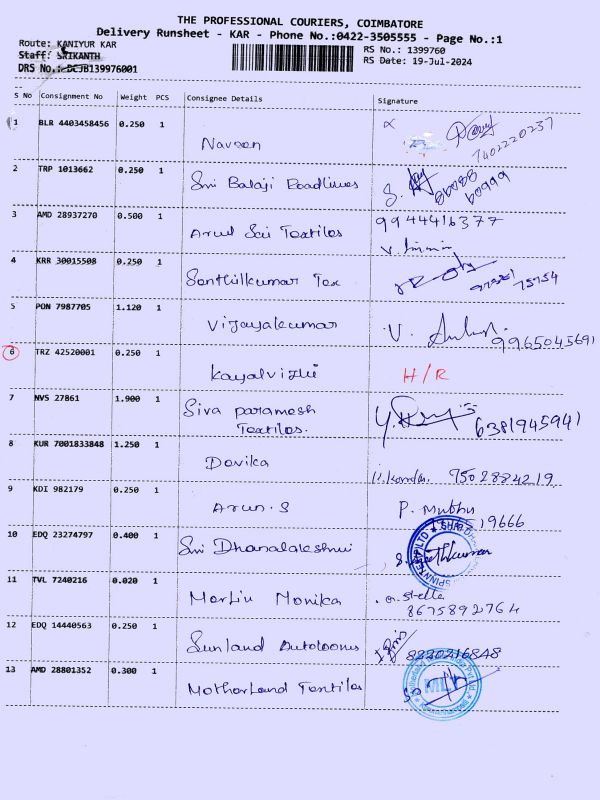 THE PROFESSIONAL COURIERS, COIMBATORE
Delivery Runsheet - KAR - Phone No.:0422-3505555 - Page No.:1
Route: KANIYUR KAR
RS No.: 1399760
Staff: SRIKANTH
RS Date: 19-Jul-2024
DRS No.: DCJB139976001
S No Consignment No Weight PCS Consignee Details Signature
1 BLR 4403458456 0.250 1
Naveen 7402220237
2 TRP 1013662 0.250 1
Sri Balaji Roadlines
3 AMD 28937270 0.500 1 9944416377
Arul Sai Textiles
4 KRR 30015508 0.250 1
Senthilkumar Tex
5 PON 7987705 1.120 1
Vijayakumar V. 9965045691
6 TRZ 42520001 0.250 1
Kayalvizhi H/R
7 NVS 27861 1.900 1
Siva paramesh
Textiles. 6381945941
8 KUR 7001833848 1.250 1
Devika 7502884219
9 KDI 982179 0.250 1
Arun.S P. Muthu
19666
10 EDQ 23274797 0.400 1
Sri Dhanalakshmi
11 TVL 7240216 0.020 1
Merlin Monika Stella
8675892764
12 EDQ 14440563 0.250 1
Sunland Autolooms 8220216848
13 AMD 28801352 0.300 1
Motherland Textiles